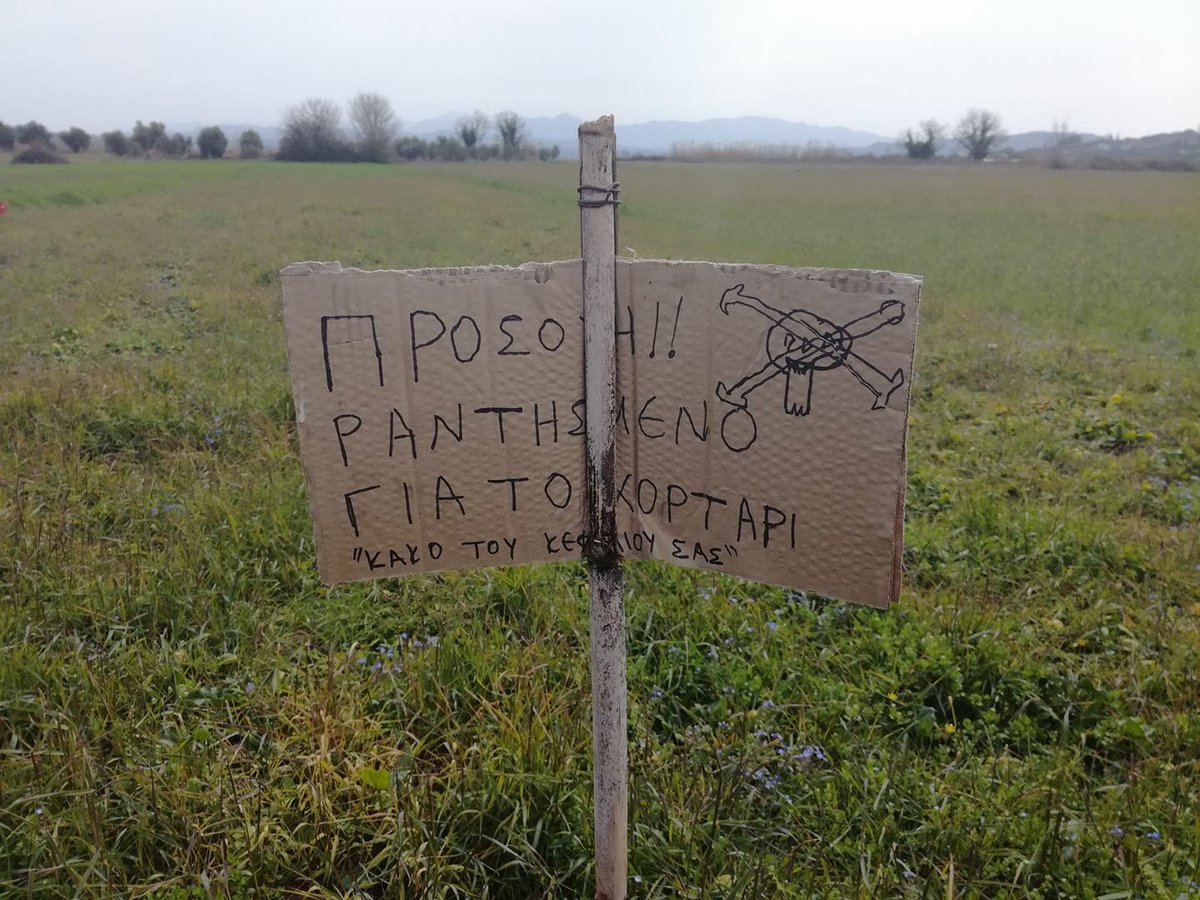 ΠΡΟΣΟΧΗ!!
ΡΑΝΤΗΣΜΕΝΟ
ΓΙΑ ΤΟ ΧΟΡΤΑΡΙ
"ΚΑΚΟ ΤΟΥ ΚΕΦΑΛΙΟΥ ΣΑΣ"